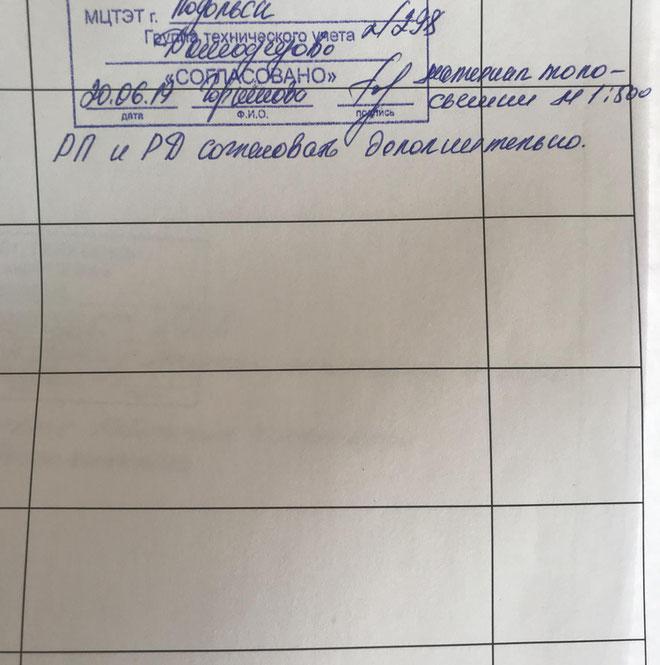 МЦТЭТ г. Подольск
Группа технического учета 2/298
Домодедово
«СОГЛАСОВАНО» материал топо-
20.06.19 съемки М 1:500
дата Ф.И.О. подпись
РП и РД согласовать дополнительно.